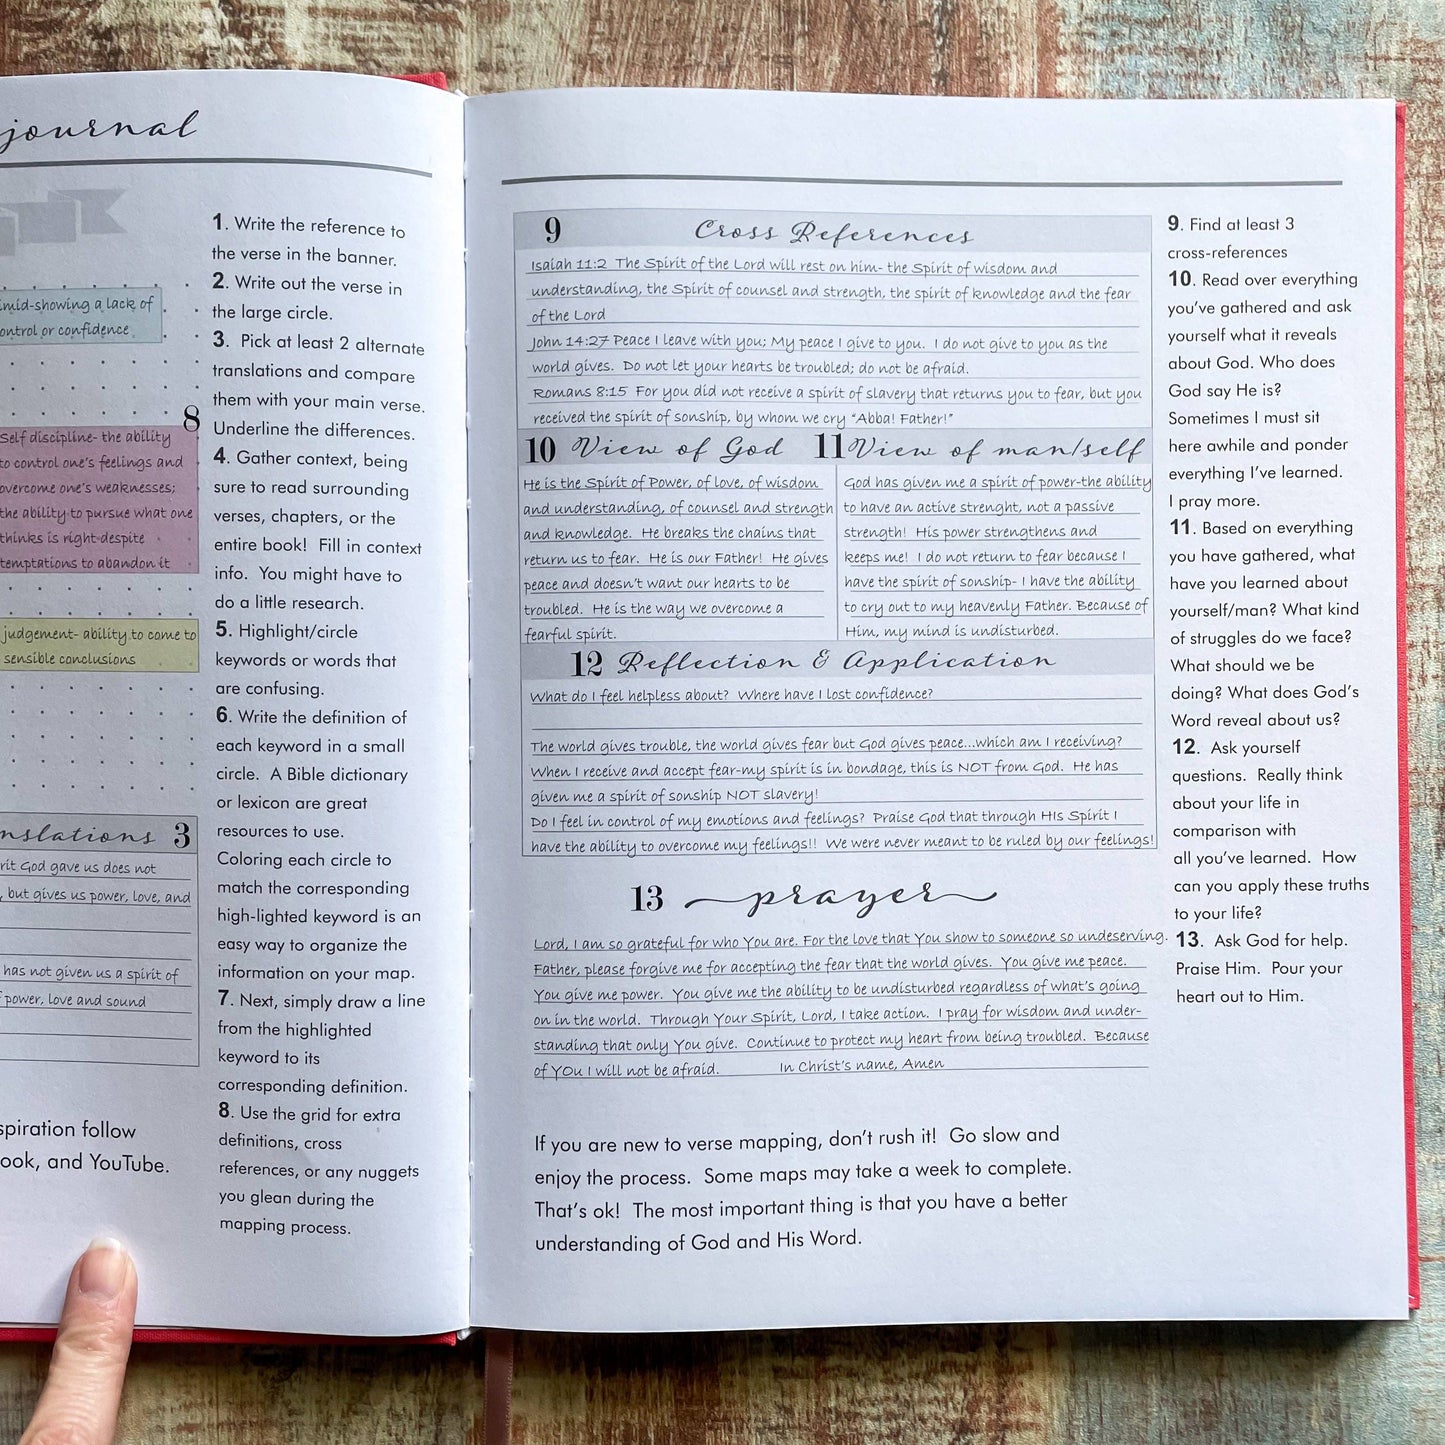 journal
imid-showing a lack of
ontrol or confidence
8
Self discipline- the ability
to control one's feelings and
overcome one's weaknesses;
the ability to pursue what one
thinks is right despite
temptations to abandon it
judgement- ability to come to
sensible conclusions
nslations 3
rit God gave us does not
, but gives us power, love, and
has not given us a spirit of
power, love and sound
spiration follow
ook, and YouTube.
1. Write the reference to
the verse in the banner.
2. Write out the verse in
the large circle.
3. Pick at least 2 alternate
translations and compare
them with your main verse.
Underline the differences.
4. Gather context, being
sure to read surrounding
verses, chapters, or the
entire book! Fill in context
info. You might have to
do a little research.
5. Highlight/circle
keywords or words that
are confusing.
6. Write the definition of
each keyword in a small
circle. A Bible dictionary
or lexicon are great
resources to use.
Coloring each circle to
match the corresponding
high-lighted keyword is an
easy way to organize the
information on your map.
7. Next, simply draw a line
from the highlighted
keyword to its
corresponding definition.
8. Use the grid for extra
definitions, cross
references, or any nuggets
you glean during the
mapping process.
9 Cross References
Isaiah 11:2 The Spirit of the Lord will rest on him- the Spirit of wisdom and
understanding, the Spirit of counsel and strength, the spirit of knowledge and the fear
of the Lord
John 14:27 Peace I leave with you; My peace I give to you. I do not give to you as the
world gives. Do not let your hearts be troubled; do not be afraid.
Romans 8:15 For you did not receive a spirit of slavery that returns you to fear, but you
received the spirit of sonship, by whom we cry "Abba! Father!"
10 View of God
He is the Spirit of Power, of love, of wisdom
and understanding, of counsel and strength
and knowledge. He breaks the chains that
return us to fear. He is our Father! He gives
peace and doesn't want our hearts to be
troubled. He is the way we overcome a
fearful spirit.
11 View of man/self
God has given me a spirit of power-the ability
to have an active strenght, not a passive
strength! His power strengthens and
keeps me! I do not return to fear because I
have the spirit of sonship- I have the ability
to cry out to my heavenly Father. Because of
Him, my mind is undisturbed.
12 Reflection & Application
What do I feel helpless about? Where have I lost confidence?
The world gives trouble, the world gives fear but God gives peace...which am I receiving?
When I receive and accept fear-my spirit is in bondage, this is NOT from God. He has
given me a spirit of sonship NOT slavery!
Do I feel in control of my emotions and feelings? Praise God that through HIs Spirit I
have the ability to overcome my feelings!! We were never meant to be ruled by our feelings!
13 prayer
Lord, I am so grateful for who You are. For the love that You show to someone so undeserving.
Father, please forgive me for accepting the fear that the world gives. You give me peace.
You give me power. You give me the ability to be undisturbed regardless of what's going
on in the world. Through Your Spirit, Lord, I take action. I pray for wisdom and under-
standing that only You give. Continue to protect my heart from being troubled. Because
of YOu I will not be afraid. In Christ's name, Amen
If you are new to verse mapping, don't rush it! Go slow and
enjoy the process. Some maps may take a week to complete.
That's ok! The most important thing is that you have a better
understanding of God and His Word.
9. Find at least 3
cross-references
10. Read over everything
you've gathered and ask
yourself what it reveals
about God. Who does
God say He is?
Sometimes I must sit
here awhile and ponder
everything I've learned.
I pray more.
11. Based on everything
you have gathered, what
have you learned about
yourself/man? What kind
of struggles do we face?
What should we be
doing? What does God's
Word reveal about us?
12. Ask yourself
questions. Really think
about your life in
comparison with
all you've learned. How
can you apply these truths
to your life?
13. Ask God for help.
Praise Him. Pour your
heart out to Him.